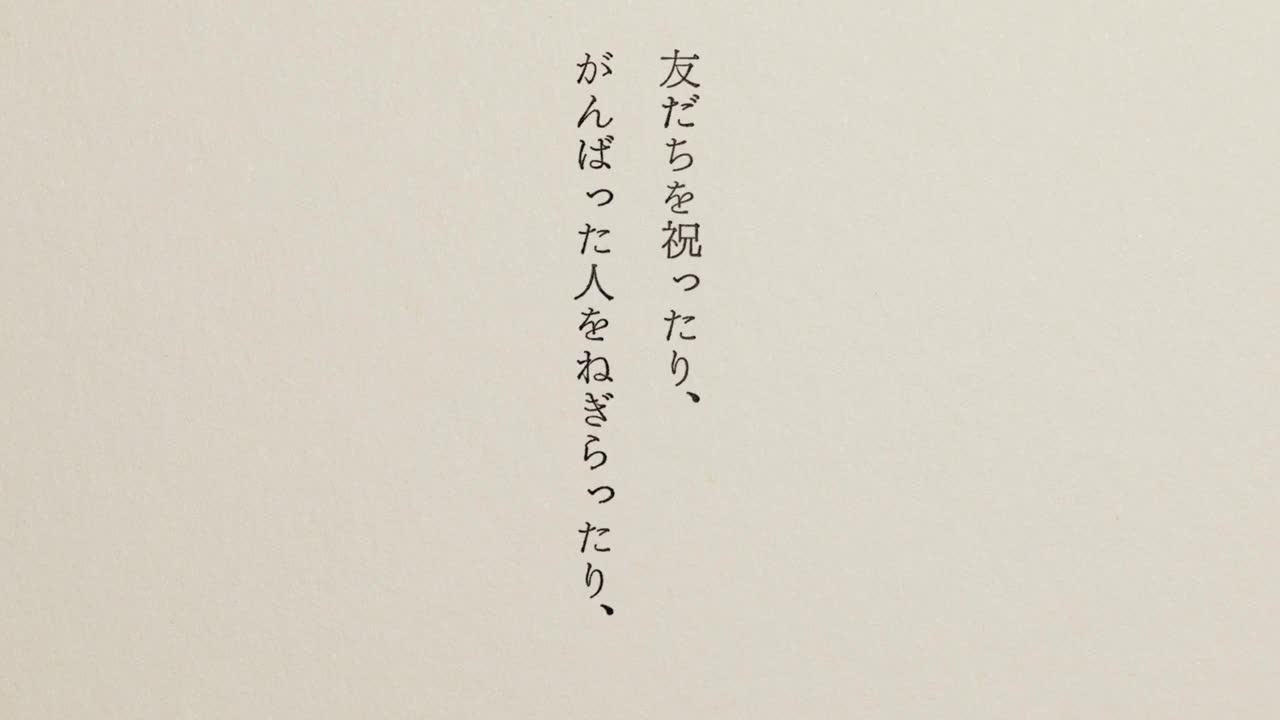 友だちを祝ったり、
がんばった人をねぎらったり、